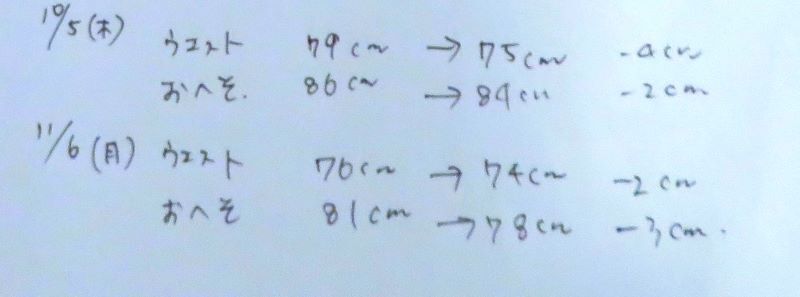 10/5(木) ウエスト 79cm → 75cm -4cm
おへそ. 86cm → 84cm -2cm
11/6(月) ウエスト 76cm → 74cm -2cm
おへそ 81cm → 78cm -3cm.